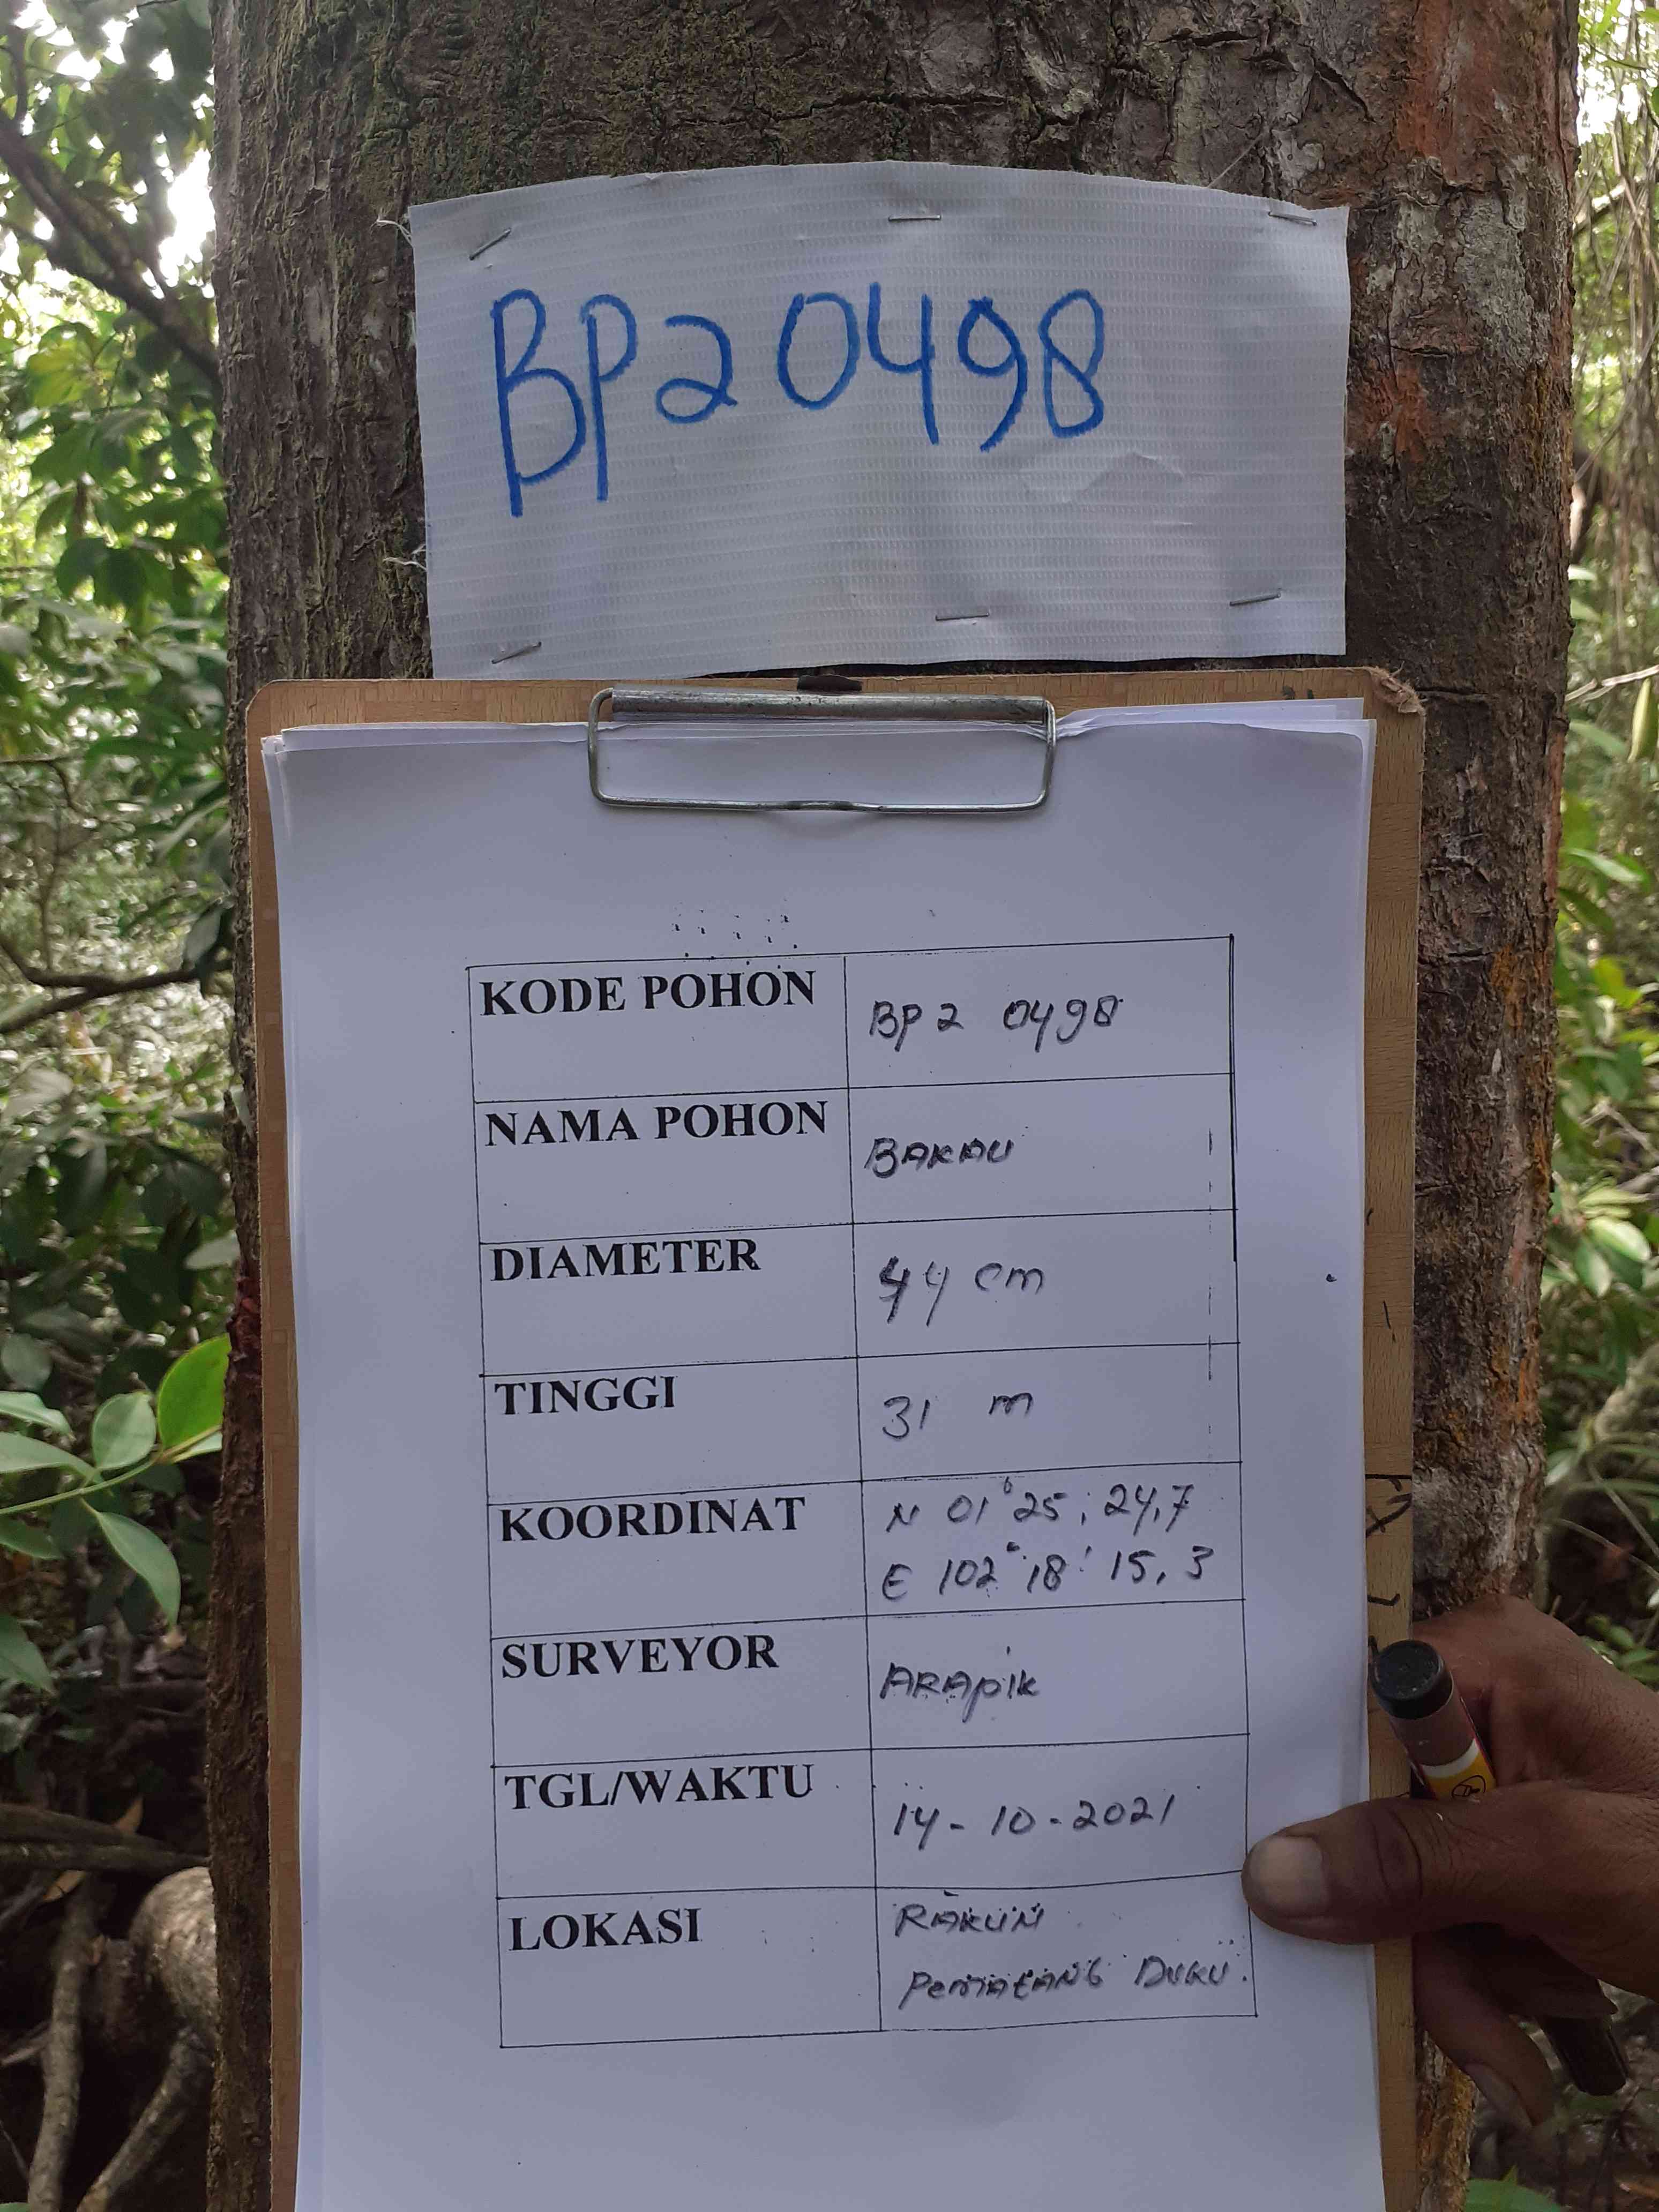 BP2 0498
KODE POHON BP2 0498
NAMA POHON BAKAU
DIAMETER 44 cm
TINGGI 31 m
KOORDINAT N 01°25, 24,7
E 102° 18' 15,3
SURVEYOR ARApik
TGL/WAKTU 14-10-2021
LOKASI RAKUN
PemAtANG DUKU.